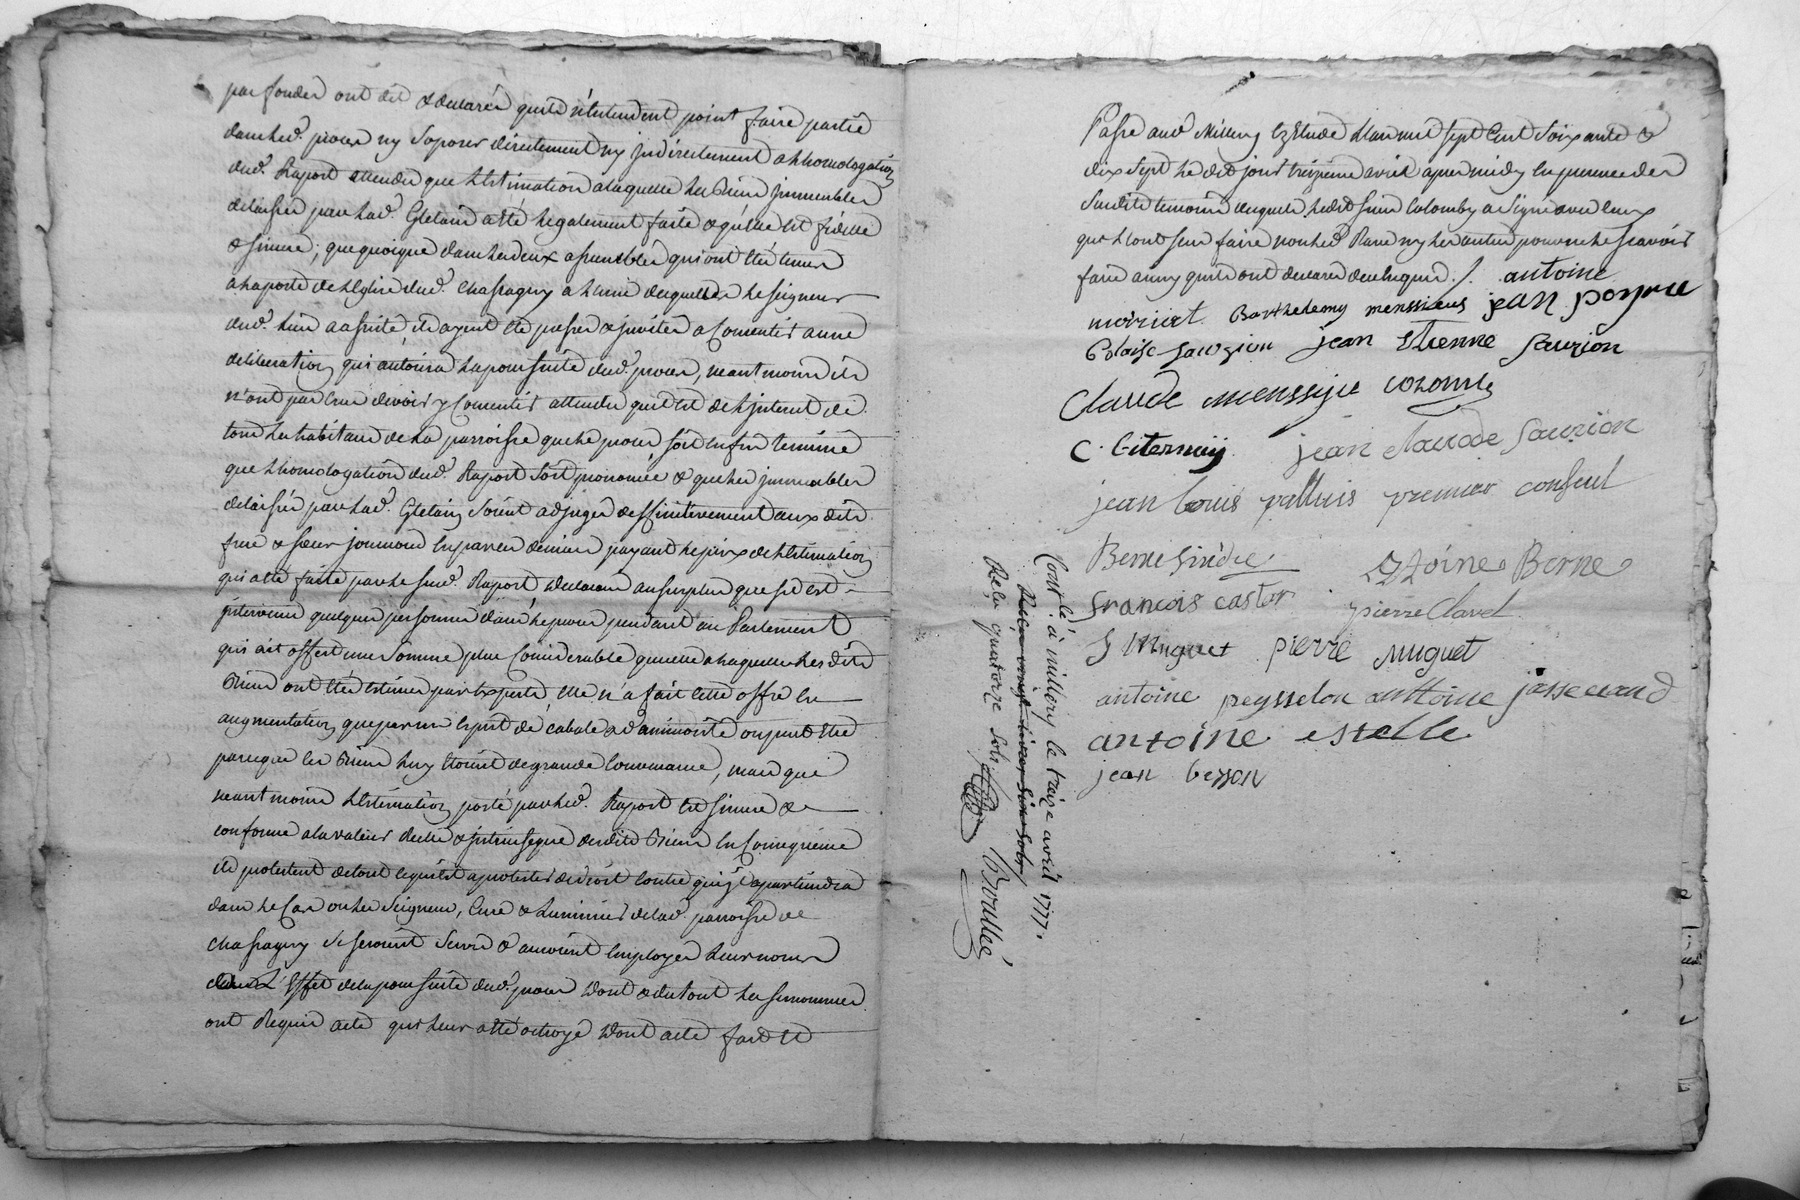 par fondés ont dit & declarés quils n'entendent point faire partie
dans led. proces ny s'oposer directement ny jndirectement a lhomologation
dud. Raport attendu que l'Estimation a laquelle les Biens jmmeubles
delaissés par lad. Gletain a eté legalement faite & qu'elle est fidelle
& sincere; que quoique dans les deux assemblées qui ont eté tenues
a la porte de l'Eglise dud. Chassagny a l'une desquelles le seigneur
dud. lieu a assisté, ils ayent eté pressés & jnvités a consentir a une
deliberation qui autorisa la poursuite dud. proces, neantmoins ils
n'ont pas crus devoir y consentir attendu quil est de l'jnterest de
tous les habitans de la parroisse que le proces soit enfin terminé
que lhomologation dud. Raport soit prononcée & que les jmmeubles
delaissés par lad. Gletain soient adjugés deffinitivement aux dits
frere & sœur journoud en par eux deniers payant le prix de l'Estimation
qui a eté faite par le sud. Raport declarant au surplus que s'il est
jntervenu quelques personnes dans le proces pendant au Parlement
qui ait offert une somme plus considerable que celle a laquelle lesdits
Biens ont eté estimés par Experts, elle n'a fait cette offre en
augmentation que par un esprit de cabale & d'animosité ou peut etre
parceque les Biens luy etoient de grande convenance, mais que
neantmoins l'Estimation porté par led. Raport est sincere &
conforme a la valeur réelle & jntrinseque desdits Biens en consequence
ils protestent de tout ce qu'est a protester de droit contre qui jl apartiendra
dans le cas ou les seigneur, Curé & Luminier de lad. parroisse de
chassagny se seroient servis & auroient employés leurs noms
dans L'Effet de la poursuite dud. proces dont & du tout les susnommés
ont Requis acte qui leur a eté octroyé dont acte fait et
Passé aud. Millery Ez Etude L'an mil sept Cent soixante &
dix sept le dit jour treizieme avril apres midy en presence des
susdits temoins desquels ledit sieur Colomby a signé avec ceux
qui l'ont seu faire non led. Rane ny les autres pour ne le scavoir
faire ainsy quils ont declarés de ce enquis ./. antoine
moiriat Barthelemy menssieus jean poyrie
Blaise sauzion jean Etienne sauzion
Claude menssieu colomby
C. Citernay jean claude sauzion
jean louis valluis premier consul
Berne sindic Antoine Berne
françois castor pierre Clavel
J Muguet pierre muguet
antoine peysselon antoine jasserand
antoine estelle
jean besson
Cont.lé à millery le traize avril 1777.
Reçu quatorze sols
Bruallé